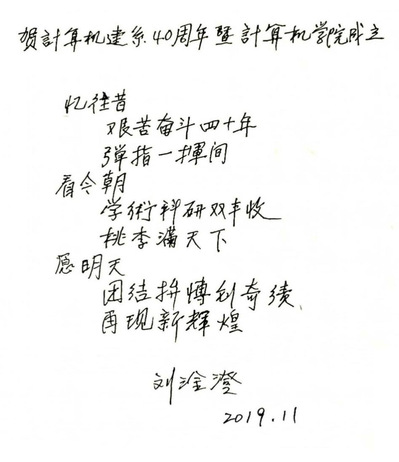 贺計算机建系40周年暨計算机学院成立
忆往昔
艰苦奋斗四十年
弹指一揮间
看今朝
学術科研双丰收
桃李满天下
愿明天
团结拼博创奇绩
再现新辉煌
刘淦澄
2019.11